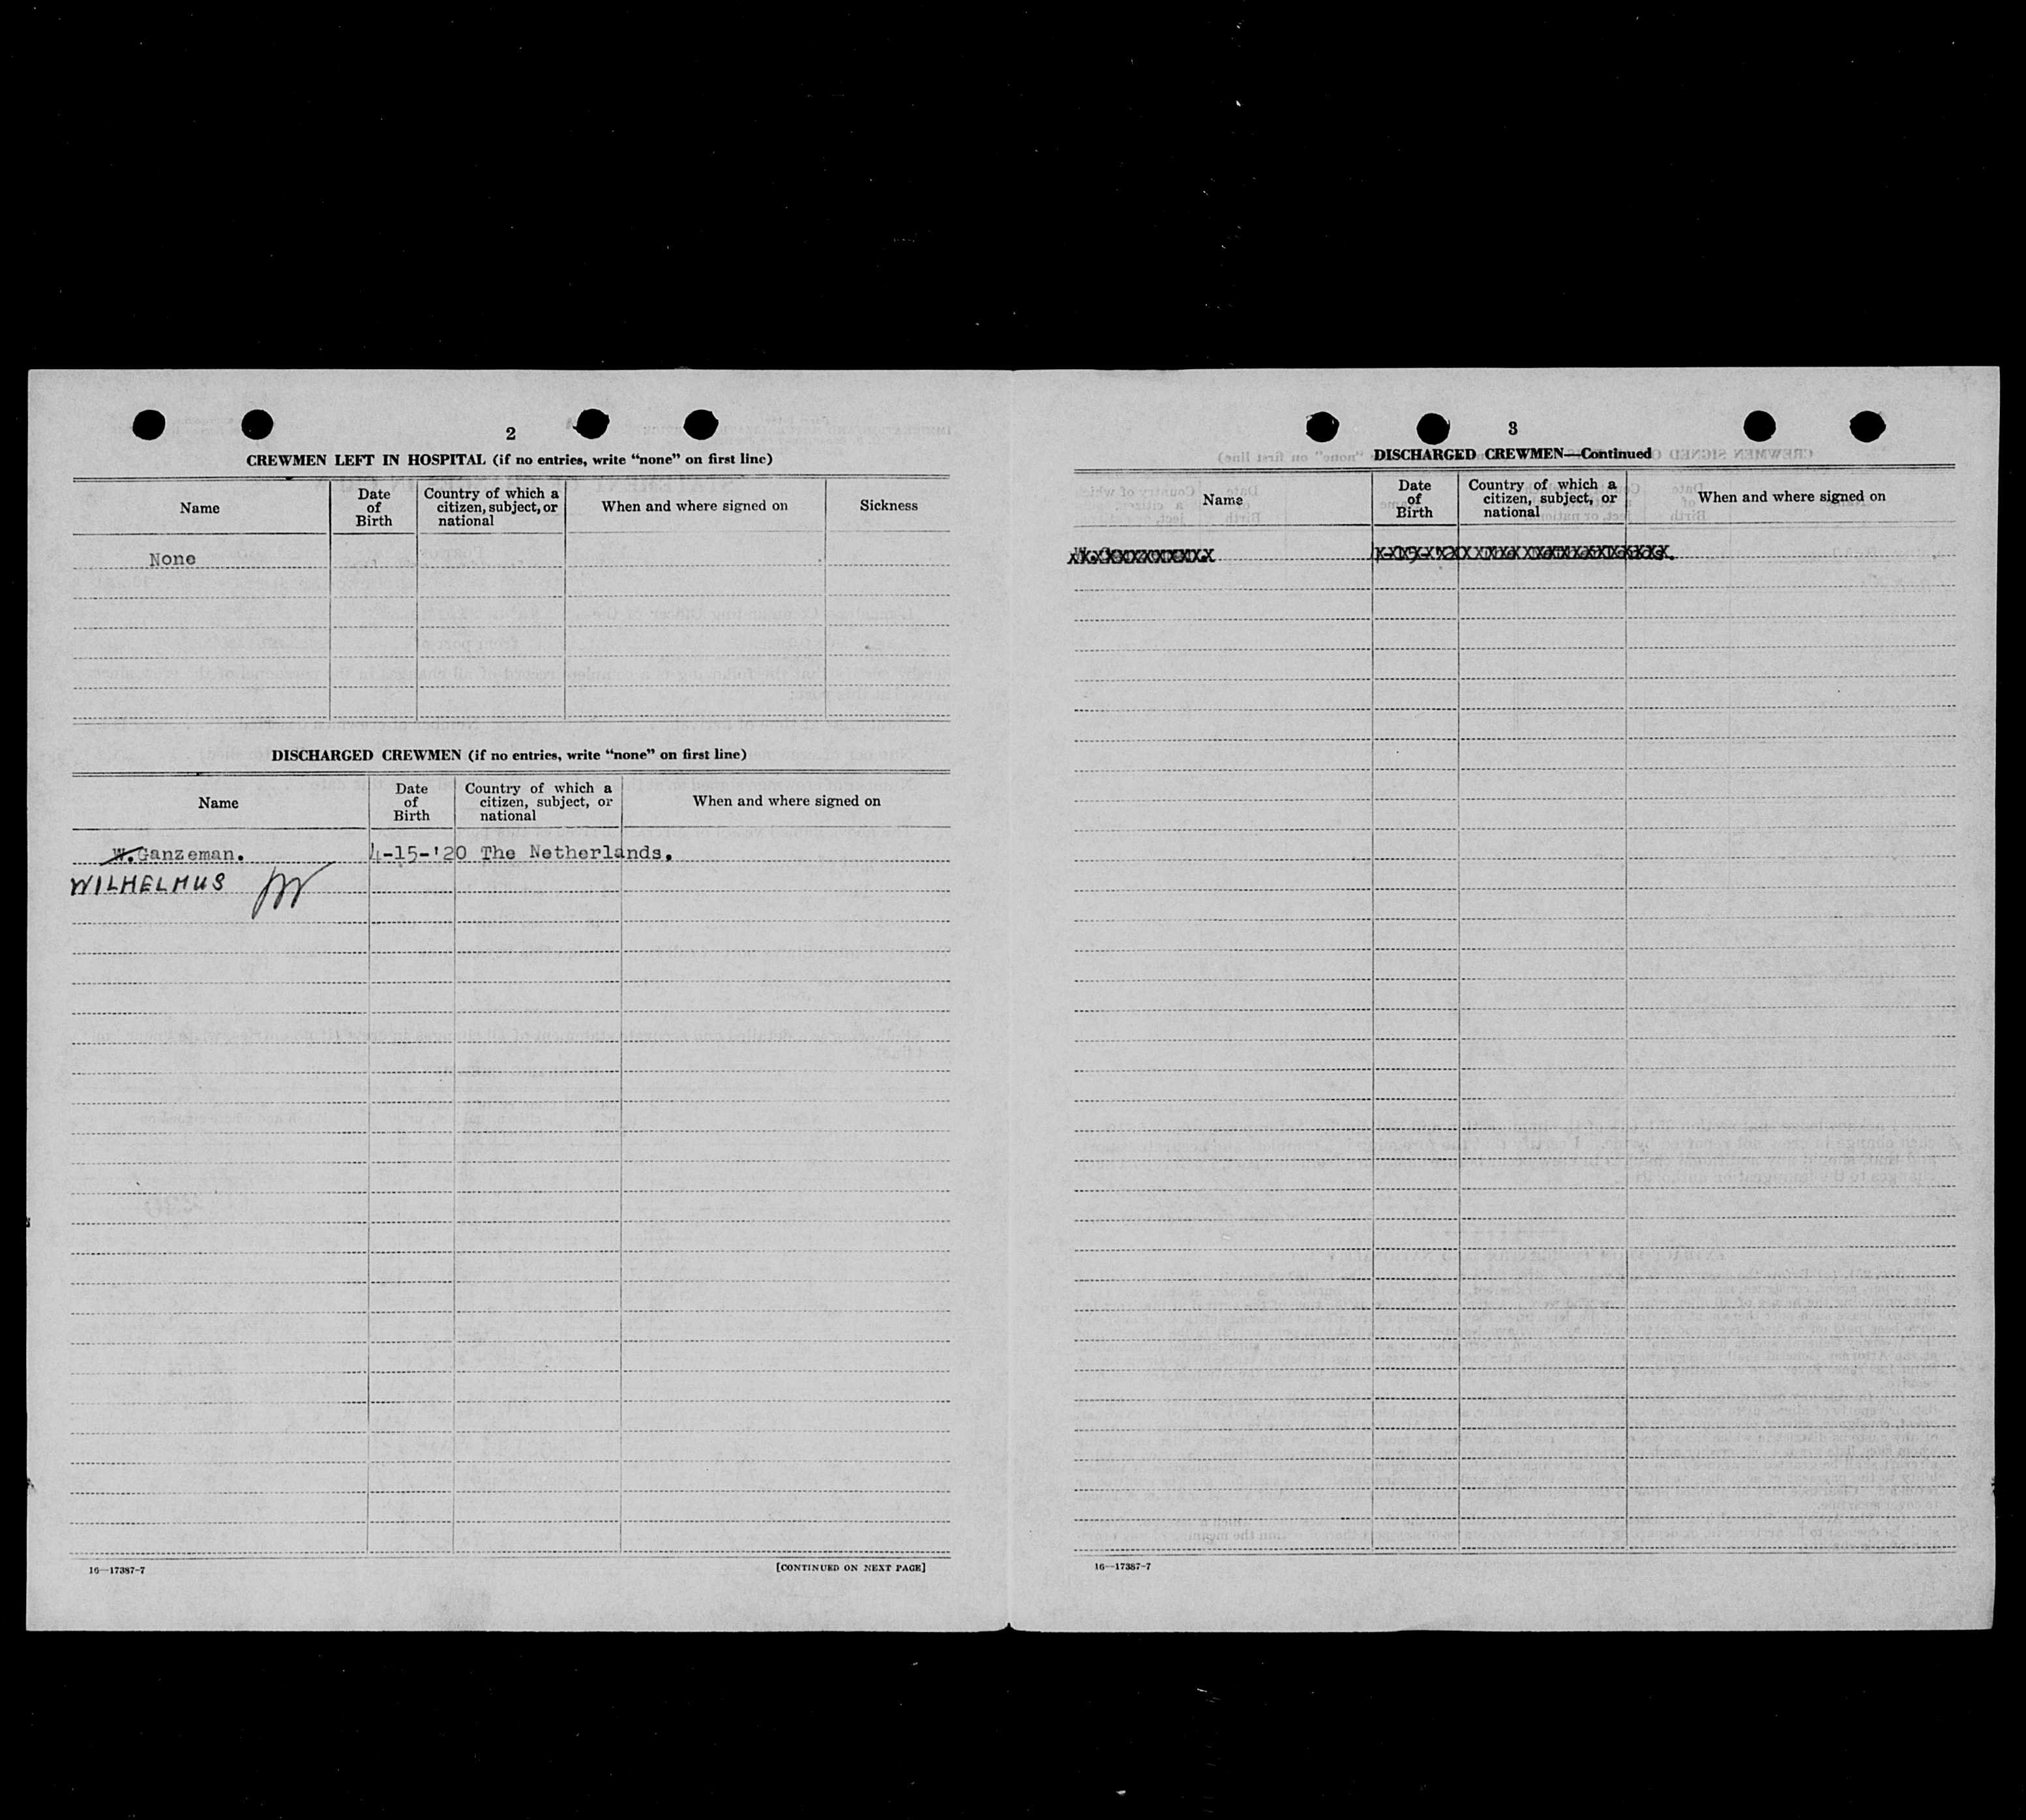 2
CREWMEN LEFT IN HOSPITAL (if no entries, write “none” on first line)
Name
Date of Birth
Country of which a citizen, subject, or national
When and where signed on
Sickness
None
DISCHARGED CREWMEN (if no entries, write “none” on first line)
Name
Date of Birth
Country of which a citizen, subject, or national
When and where signed on
W.Ganzeman. 4-15-'20 The Netherlands.
WILHELMUS
16—17387-7
[CONTINUED ON NEXT PAGE]
3
DISCHARGED CREWMEN—Continued
Name
Date of Birth
Country of which a citizen, subject, or national
When and where signed on
16—17387-7